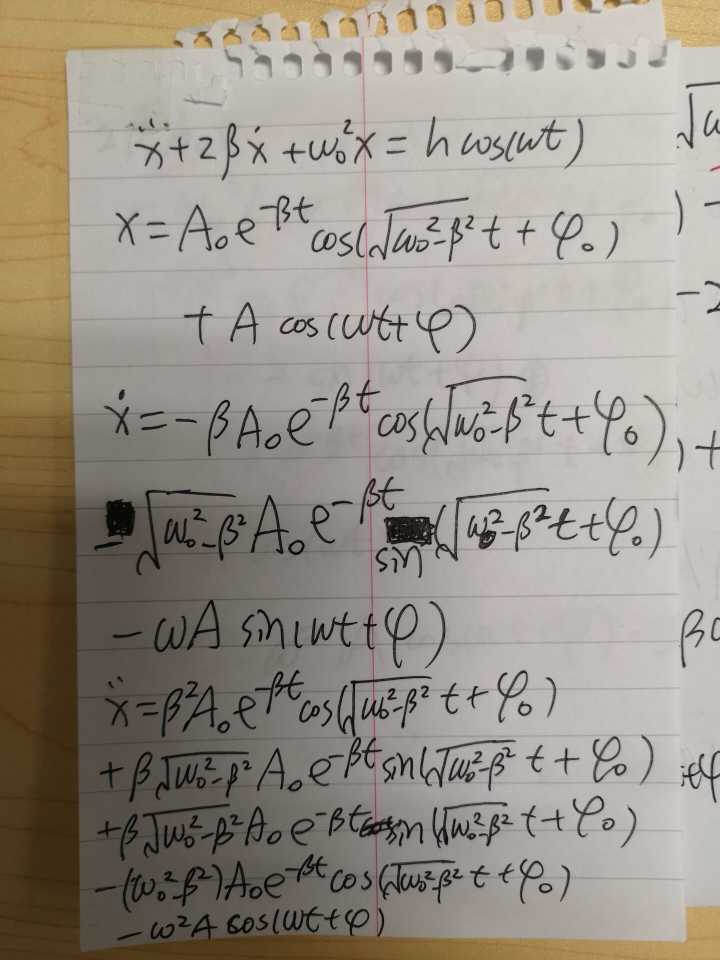 ẍ+2βẋ+ω₀²x=h cos(ωt)
x=A₀e^{-βt}cos(√(ω₀²-β²)t+φ₀)
+A cos(ωt+φ)
ẋ=-βA₀e^{-βt}cos(√(ω₀²-β²)t+φ₀)
-√(ω₀²-β²)A₀e^{-βt}sin(√(ω₀²-β²)t+φ₀)
-ωA sin(ωt+φ)
ẍ=β²A₀e^{-βt}cos(√(ω₀²-β²)t+φ₀)
+β√(ω₀²-β²)A₀e^{-βt}sin(√(ω₀²-β²)t+φ₀)
+β√(ω₀²-β²)A₀e^{-βt}sin(√(ω₀²-β²)t+φ₀)
-(ω₀²-β²)A₀e^{-βt}cos(√(ω₀²-β²)t+φ₀)
-ω²A cos(ωt+φ)